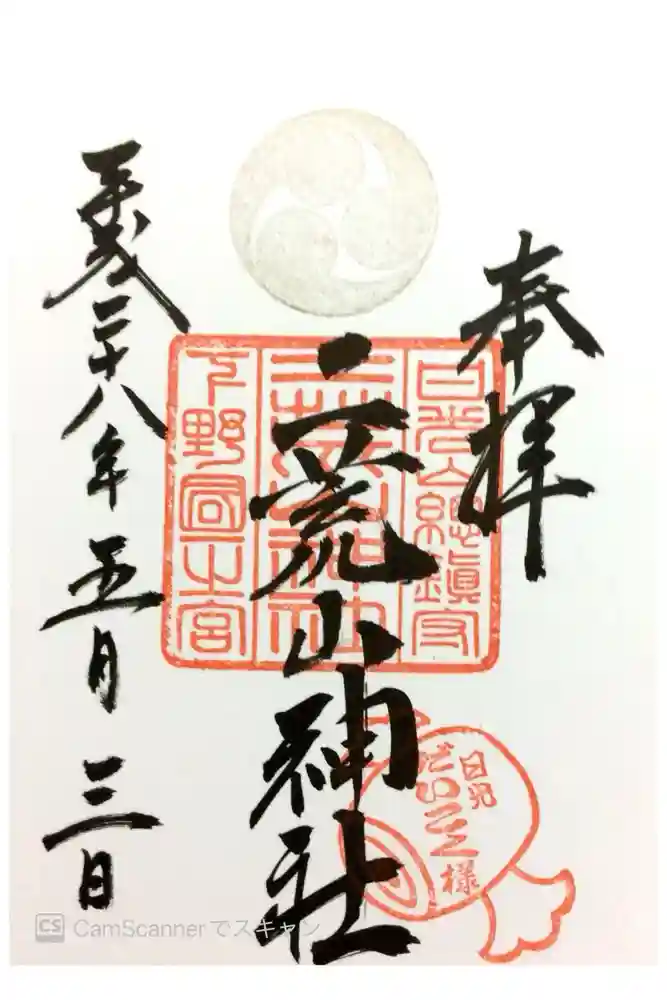 奉拝
二荒山神社
平成二十八年五月三日
日光山總鎮守
二荒山神社
下野國一之宮
日光
だいこく様
CS CamScannerでスキャン